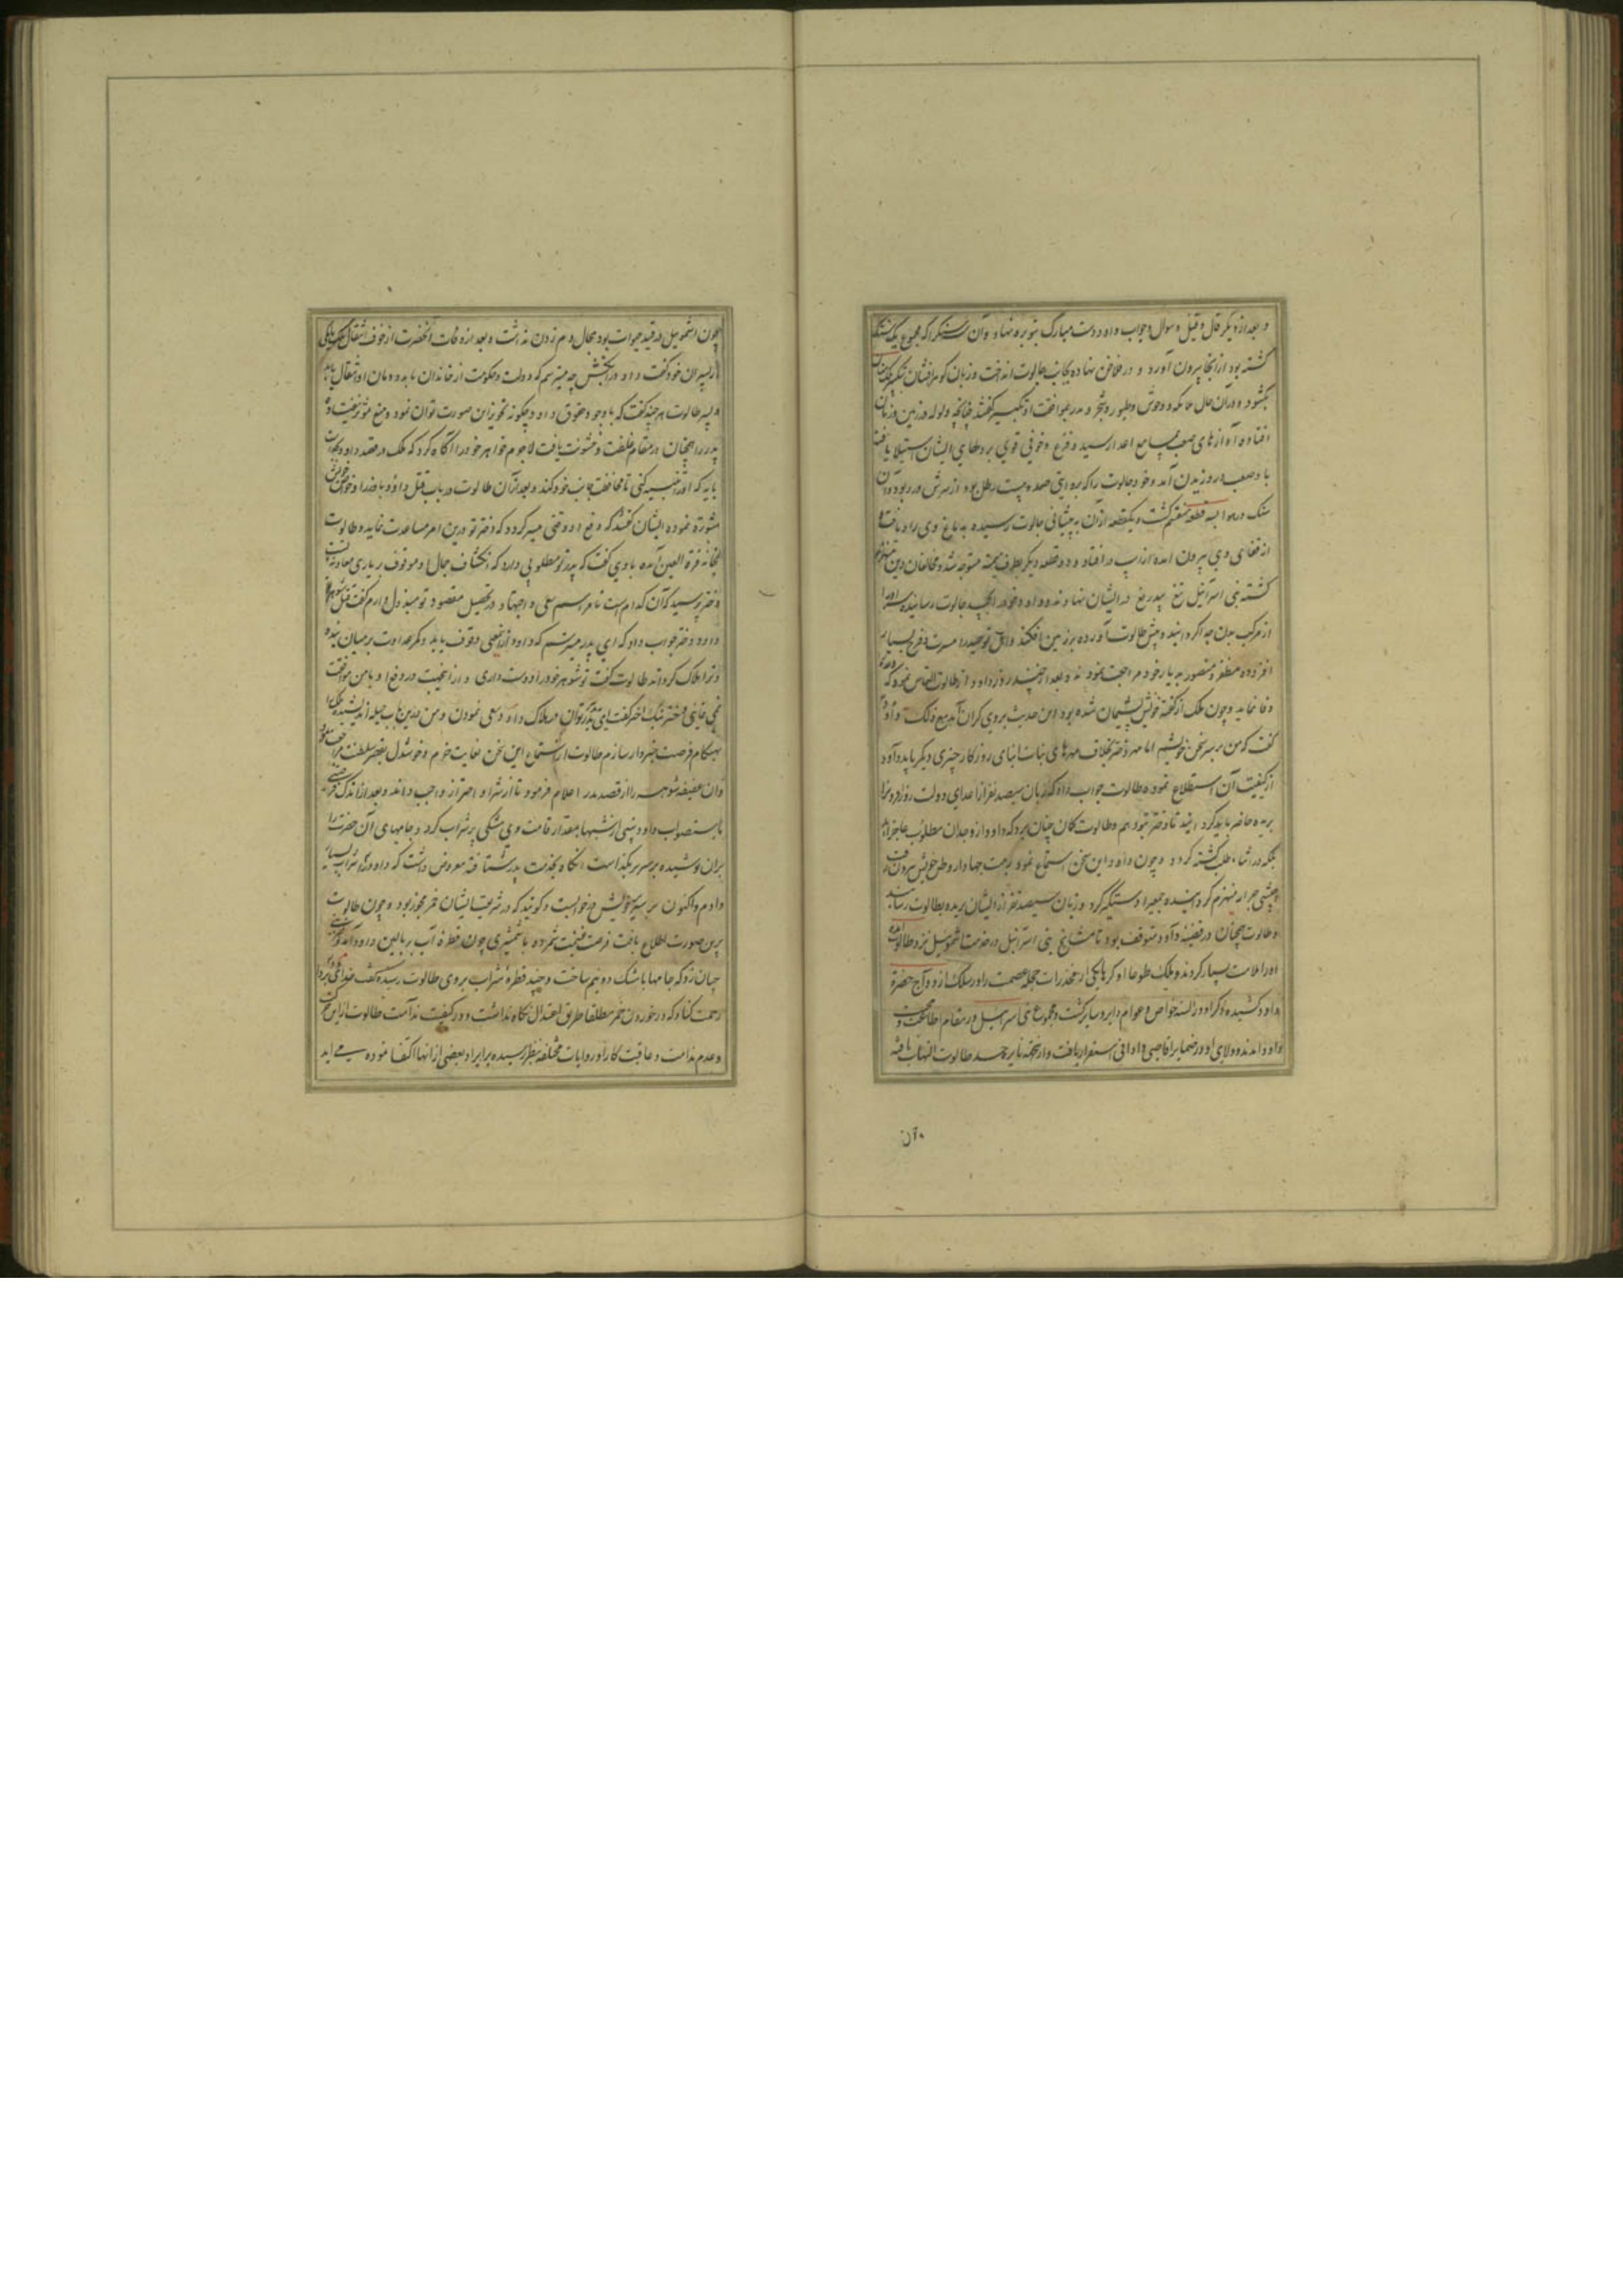 و بعد از دیگر قال و قیل و سوال و جواب داود دست مبارک بتوبره نهاد و آن سه سنکرا که مجموع یک سنک
کشته بود از انجا بیرون آورد و در فلاخن نهاده بجانب جالوت انداخت و زبان کوهرافشان بتکبیر ملک منان
بکشود و در آن حال ملائکه و وحوش و طیور و شجر و مدر بموافقت او تکبیر کفتند چنانچه ولوله در زمین و زمان
افتاده آوازهای صعب بمسامع اعدا رسید و فزع و خوفی قوی بر دلهای ایشان استیلا یافت
باد صعب در وزیدن آمد و خود جالوت را که بروایتی صد و بیست رطل بود از سرش در ربود و آن
سنک در هوا بسه قطعه منقسم کشت و یکقطعه از آن به پیشانی جالوت رسیده به دماغ وی راه یافت و
از قفای وی بیرون آمده از اسب در افتاد و دو قطعه دیکر بطرف میمنه متوجه شد و مخالفان دین منهزم
کشته بنی اسرائیل تیغ بیدریغ در ایشان نهادند و داود خود را بجسد جالوت رسانیده سر او را
از مرکب بدن جدا کردانید و پیش طالوت آورده بر زمین افکند و اهل توحید را مسرت و فرح بسیار
افزوده مظفر و منصور به دیار خود مراجعت نمودند و بعد از چند روز داود از طالوت التماس نمود که بوعده
وفا نماید و چون ملک از کفته خویش پشیمان شده بود این حدیث بر وی کران آمد مع ذلک داود را
کفت که من بر سر سخن خویشم اما مهر دختر بخلاف مهرهای بنات ابنای روزکار چیزی دیکر باید داود
از کیفیت آن استطلاع نموده طالوت جواب داد که زبان سیصد نفر از اعدای دولت روزافزون را
بریده حاضر باید کرد انید تا دختر بتو دهم و طالوت کان چنان برد که داود از وجدان مطلوب عاجز آید
بلکه در اثناء طلب کشته کردد و چون داود این سخن استماع نمود بجهت جهاد از وطن خویش بیرون رفت
و جیشی جرار منهزم کردانیده جمعی را دستکیر کرد و زبان سیصد نفر از ایشان بریده بطالوت رسانید
و طالوت همچنان در قضیه داود متوقف بود تا مشایخ بنی اسرائیل در خدمت اشمویل نزد طالوت آمده
او را ملامت بسیار کردند و ملک طوعا او کرها یکی از مخدرات حجله عصمت را در سلک ازدواج حضرت
داود کشیده ذکر او در السنه خواص و عوام دایر و سایر کشت و مجموع بنی اسرائیل در مقام اطاعت و محبت
داود آمدند و ولای او در ضمایر اقاصی و ادانی استقرار یافت و از این جهة نایره حسد طالوت التهاب یافته
و آن
چون اشمویل در قید حیوات بود مجال دم زدن نداشت و بعد از وفات آنحضرت از خوف انتقال ملک با یکی
از پسران خود کفت داود در آنجنبش چه میترسم که دولت و حکومت از خاندان ما به دودمان او انتقال یابد
و پسر طالوت هر چند کفت که با وجود حقوق داود چکونه تجویز این صورت توان نمود و منع موثر نیفتاد و
پدر را همچنان در مقام غلظت و خشونت یافت لاجرم خواهر خود را آکاه کرد که ملک در قصد داود بجدست
باید که او را تنبیه کنی تا محافظت جانب خود کند و بعد از آن طالوت در باب قتل داود با وزرا و خواص خویش
مشورة نموده ایشان کفتند که دفع او وقتی میسر کردد که دخترتو درین امر مساعدت نماید و طالوت
بخانه قرة العین آمده با وی کفت که پدر تو مطلوبی دارد که انکشاف جمال او موقوف بر یاری معاونت تست
دختر پرسید که آن کدام است تا مراسم سعی و اجتهاد در تحصیل مقصود تو مبذول دارم کفت قتل شوهر تو
داود دختر جواب داد که ای پدر میترسم که داود از اینمعنی وقوف یابد و کمر عداوت بر میان بندد
و ترا هلاک کرداند طالوت کفت تو شوهر خود را دوست داری و از اینجهت در دفع او با من موافقت
نمی نمایی دختر نیک اختر کفت ای پدر توان در هلاک داود سعی نمودن و من درین باب حیله اندیشیده ملک را
بهنکام فرصت خبردار سازم طالوت از استماع این سخن بغایت خرم و خوشدل بقصر سلطنت مراجعت نمود
و آن عفیفه شوهر را از قصد پدر اعلام فرمود تا از شر او احتراز واجب داند و بعد از اندک فرصتی
باستصواب داود شبی از شبها بمقدار قامت وی مشکی پر شراب کرد و جامهای آن حضرت را
بران پوشیده بر سریر بکذاشت آنکاه بخدمت پدر شتافته معروض داشت که داود را شراب بسیار
دادم و اکنون بر سریر خویش در خوابست و کویند که در شریعت ایشان خمر مجوز بود و چون طالوت
برین صورت اطلاع یافت فرصت غنیمت شمرده با شمشیری چون قطرهٔ آب ببالین داود آمد و ضربتی
چنان زد که جامها با مشک دو نیم ساخت و چند قطره شراب بر روی طالوت رسید و کفت خدای بر داود
رحمت کناد که در خوردن خمر مطلقا طریق اعتدال نکاه نداشت و در کیفیت ندامت طالوت از این حرکت
و عدم ندامت و عاقبت کار او روایات مختلفه بنظر رسیده برایراد بعضی از انها اکتفا نموده می آید